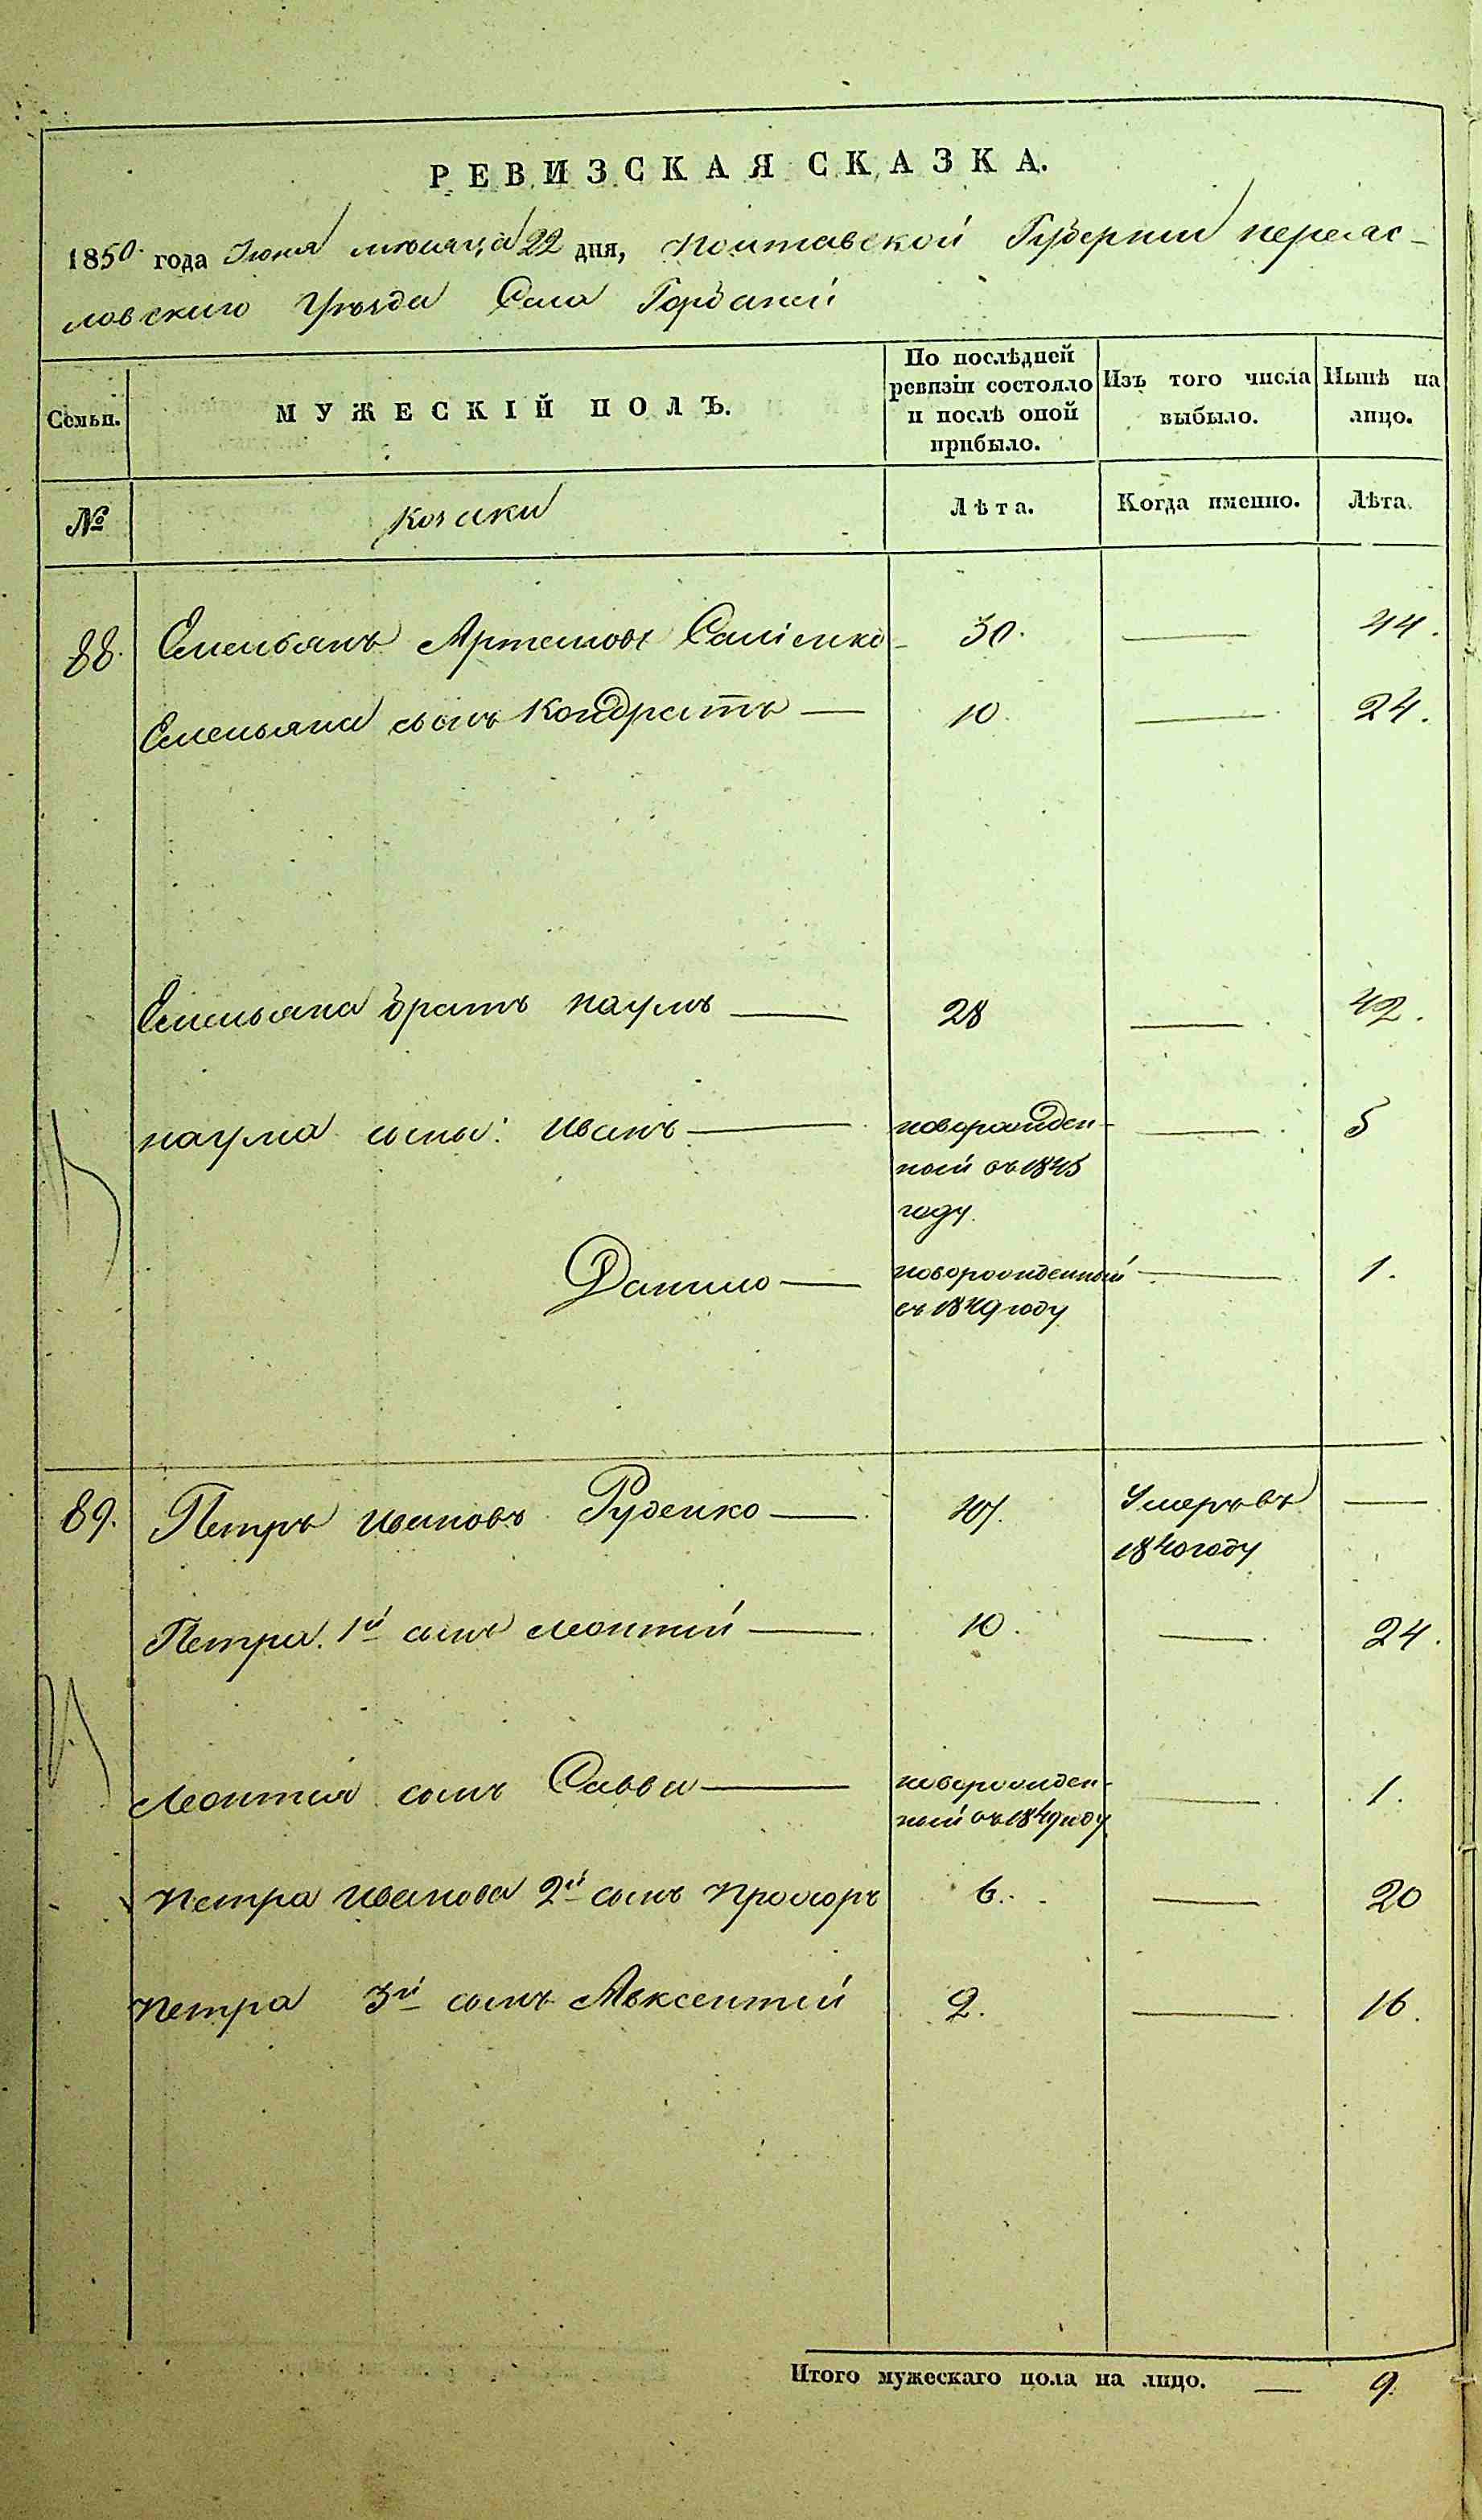 РЕВИЗСКАЯ СКАЗКА.
1850 года Июня месяца 22 дня, Полтавской Губернии переяс-
ловского Уѣзда Села Горбаней
Семьи.
МУЖЕСКІЙ ПОЛЪ.
По послѣдней ревизіи состояло и послѣ оной прибыло.
Изъ того числа выбыло.
Нынѣ на лицо.
№
Козаки
Лѣта.
Когда именно.
Лѣта.
88. Емельянъ Артемовъ 30. — 44.
Емельяна сынъ Кондратъ — 10. — 24.
Емельяна братъ наумъ — 28 — 42.
наума сыны: иванъ — новорожден-
ный въ 1845
году. — 5
Данило — новорожденный
въ 1849 году — 1.
89. Петръ ивановъ Руденко — 47. Умеръ въ
1840 году —
Петра 1й сынъ леонтій — 10. — 24.
леонтія сынъ Савва — новорожден-
ный въ 1849 году — 1.
петра иванова 2й сынъ прохоръ 6. — 20
петра 3й сынъ Авксентій 2. — 16.
Итого мужескаго пола на лицо. — 9.